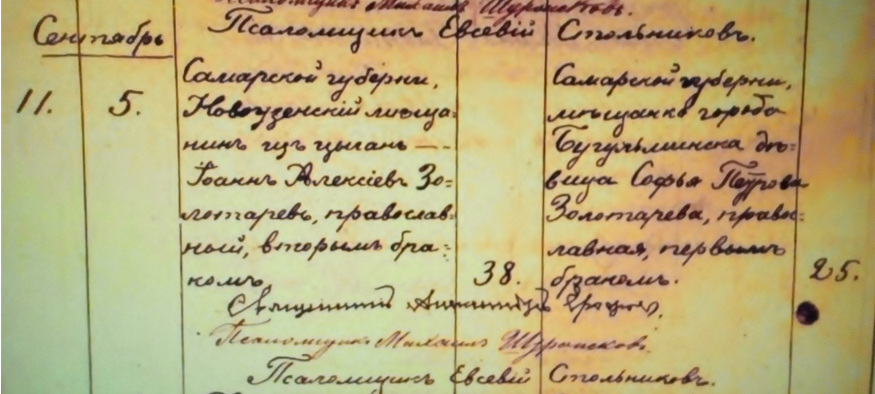 Псаломщикъ Михаилъ
Псаломщикъ Евсевій Стольниковъ.
Сентябрь
11. 5.
Самарской губерни,
Новоузенскій мѣща-
нинъ изъ цыганъ —
Іоаннъ Алексіевъ Зо=
лотаревъ, православ-
ный, вторымъ бра-
комъ
38.
Самарской губерни,
мѣщанка города
Бугульминска дѣ=
вица Софья Петрова
Золотарева, право=
славная, первымъ
бракомъ.
25.
Священникъ
Псаломщикъ Михаилъ
Псаломщикъ Евсевій Стольниковъ.